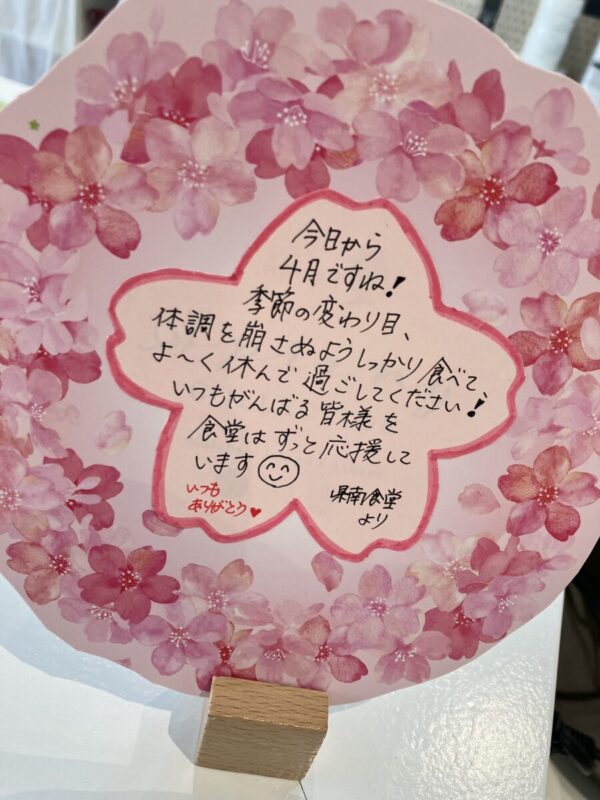 今日から
4月ですね!
季節の変わり目、
体調を崩さぬようしっかり食べて、
よ〜く休んで過ごしてください!
いつもがんばる皆様を
食堂はずっと応援して
います
いつも
ありがとう♥
県南食堂
より